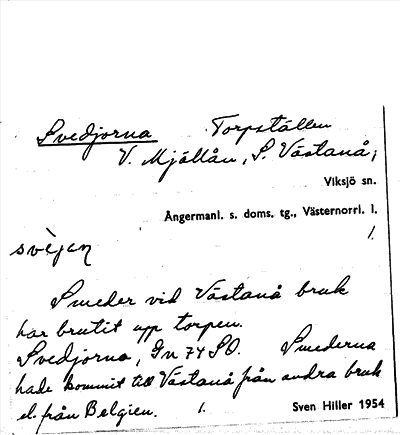 Svedjorna Torpställen
V. Mjällån, S. Västanå;
Viksjö sn.
Ångermanl. s. doms. tg., Västernorrl. l.
1.
svèjen
Smeder vid Västanå bruk
har brutit upp torpen.
Svedjorna, Gn 74 SO. Smederna
hade kommit till Västanå från andra bruk
el. från Belgien. 1. Sven Hiller 1954